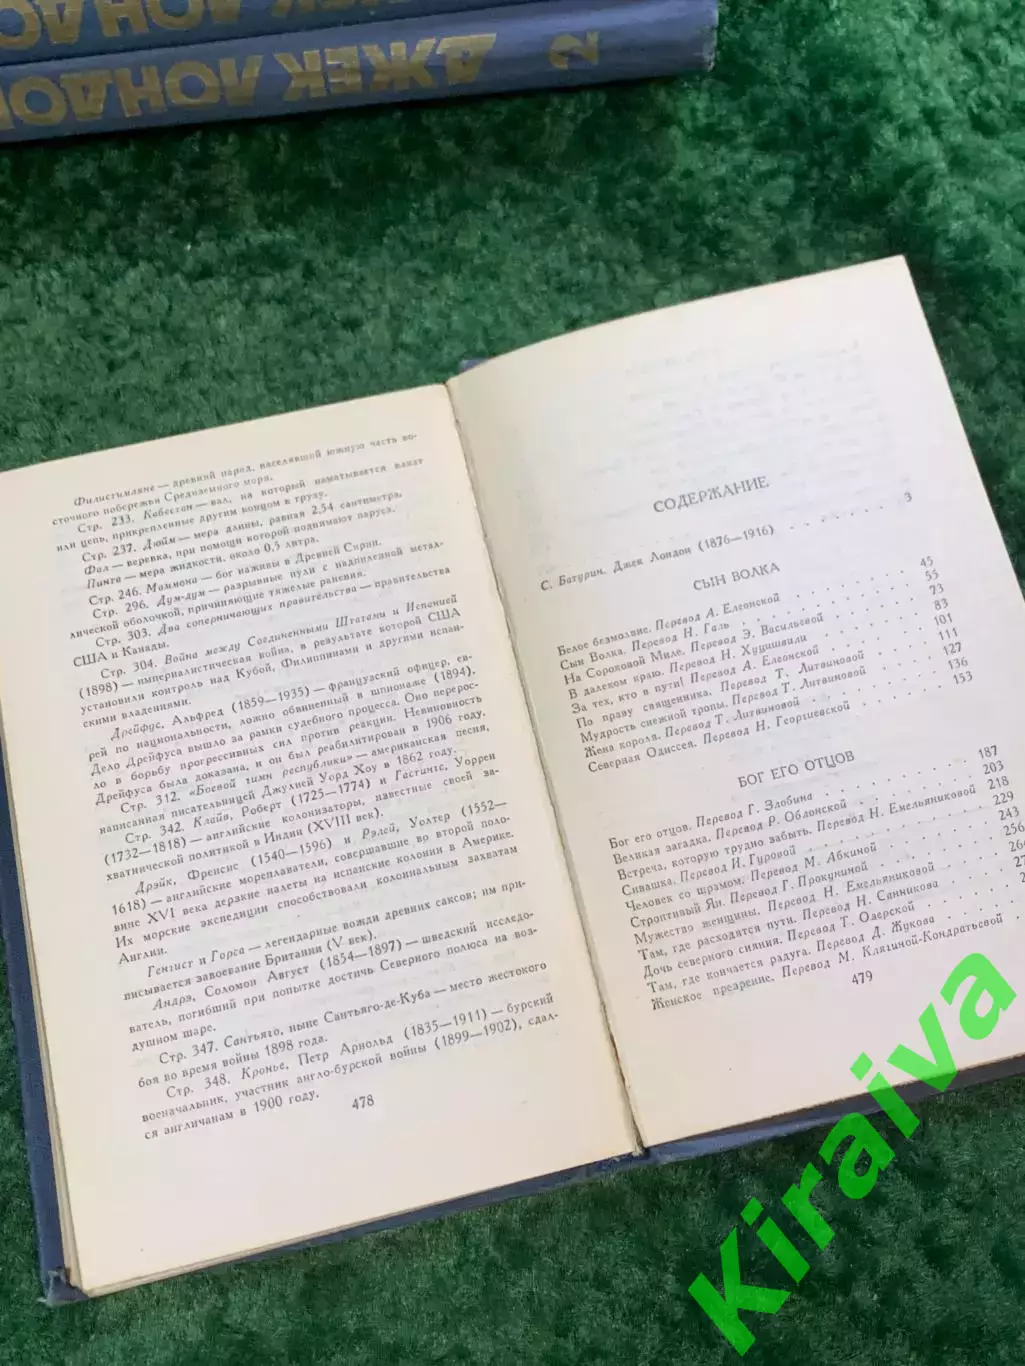 ДЖЕК ЛОНДОН
ДЖЕК ЛОНДОН 2
Филистимляне — древний народ, населявший южную часть во-
сточного побережья Средиземного моря.
Стр. 233. Кабестан — вал, на который наматывается канат
или цепь, прикрепленные другим концом к грузу.
Стр. 237. Дюйм — мера длины, равная 2,54 сантиметра.
Фал — веревка, при помощи которой поднимают паруса.
Пинта — мера жидкости, около 0,5 литра.
Стр. 246. Маммона — бог наживы в Древней Сирии.
Стр. 296. Дум-дум — разрывные пули с надпиленной метал-
лической оболочкой, причиняющие тяжелые ранения.
Стр. 303. Два соперничающих правительства — правительства
США и Канады.
Стр. 304. Война между Соединенными Штатами и Испанией
(1898) — империалистическая война, в результате которой США
установили контроль над Кубой, Филиппинами и другими испан-
скими владениями.
Дрейфус, Альфред (1859—1935) — французский офицер, ев-
рей по национальности, ложно обвиненный в шпионаже (1894).
Дело Дрейфуса вышло за рамки судебного процесса. Оно перерос-
ло в борьбу прогрессивных сил против реакции. Невиновность
Дрейфуса была доказана, и он был реабилитирован в 1906 году.
Стр. 312. «Боевой гимн республики» — американская песня,
написанная писательницей Джулией Уорд Хоу в 1862 году.
Стр. 342. Клайв, Роберт (1725—1774) и Гастингс, Уоррен
(1732—1818) — английские колонизаторы, известные своей за-
хватнической политикой в Индии (XVIII век).
Дрэйк, Френсис (1540—1596) и Рэлей, Уолтер (1552—
1618) — английские мореплаватели, совершавшие во второй поло-
вине XVI века дерзкие налеты на испанские колонии в Америке.
Их морские экспедиции способствовали колониальным захватам
Англии.
Генгист и Горса — легендарные вожди древних саксов; им при-
писывается завоевание Британии (V век).
Андрэ, Соломон Август (1854—1897) — шведский исследо-
ватель, погибший при попытке достичь Северного полюса на воз-
душном шаре.
Стр. 347. Сантьяго, ныне Сантьяго-де-Куба — место жестокого
боя во время войны 1898 года.
Стр. 348. Кронье, Петр Арнольд (1835—1911) — бурский
военачальник, участник англо-бурской войны (1899—1902), сдал-
ся англичанам в 1900 году.
478
СОДЕРЖАНИЕ
С. Батурин. Джек Лондон (1876—1916) . . . . . . . 3
СЫН ВОЛКА
Белое безмолвие. Перевод А. Елеонской . . . . . . 45
Сын Волка. Перевод Н. Галь . . . . . . 55
На Сороковой Миле. Перевод Э. Васильевой . . . . . 73
В далеком краю. Перевод Н. Хуцишвили . . . . . 83
За тех, кто в пути! Перевод А. Елеонской . . . . . 101
По праву священника. Перевод Т. Литвиновой . . . . 111
Мудрость снежной тропы. Перевод Т. Литвиновой . . . . 127
Жена короля. Перевод Т. Литвиновой . . . . . 136
Северная Одиссея. Перевод Н. Георгиевской . . . . . 153
БОГ ЕГО ОТЦОВ
Бог его отцов. Перевод Г. Злобина . . . . . . 187
Великая загадка. Перевод Р. Облонской . . . . . 203
Встреча, которую трудно забыть. Перевод Н. Емельяниковой 218
Сивашка. Перевод И. Гуровой . . . . . . 229
Человек со шрамом. Перевод М. Абкиной . . . . . 243
Строптивый Ян. Перевод Г. Прокуниной . . . . . 256
Мужество женщины. Перевод Н. Емельяниковой . . . .
Там, где расходятся пути. Перевод Н. Санникова . . . .
Дочь северного сияния. Перевод Т. Озерской . . . .
Там, где кончается радуга. Перевод Д. Жукова . . . .
Женское презрение. Перевод М. Клягиной-Кондратьевой . .
479
Kiraiva